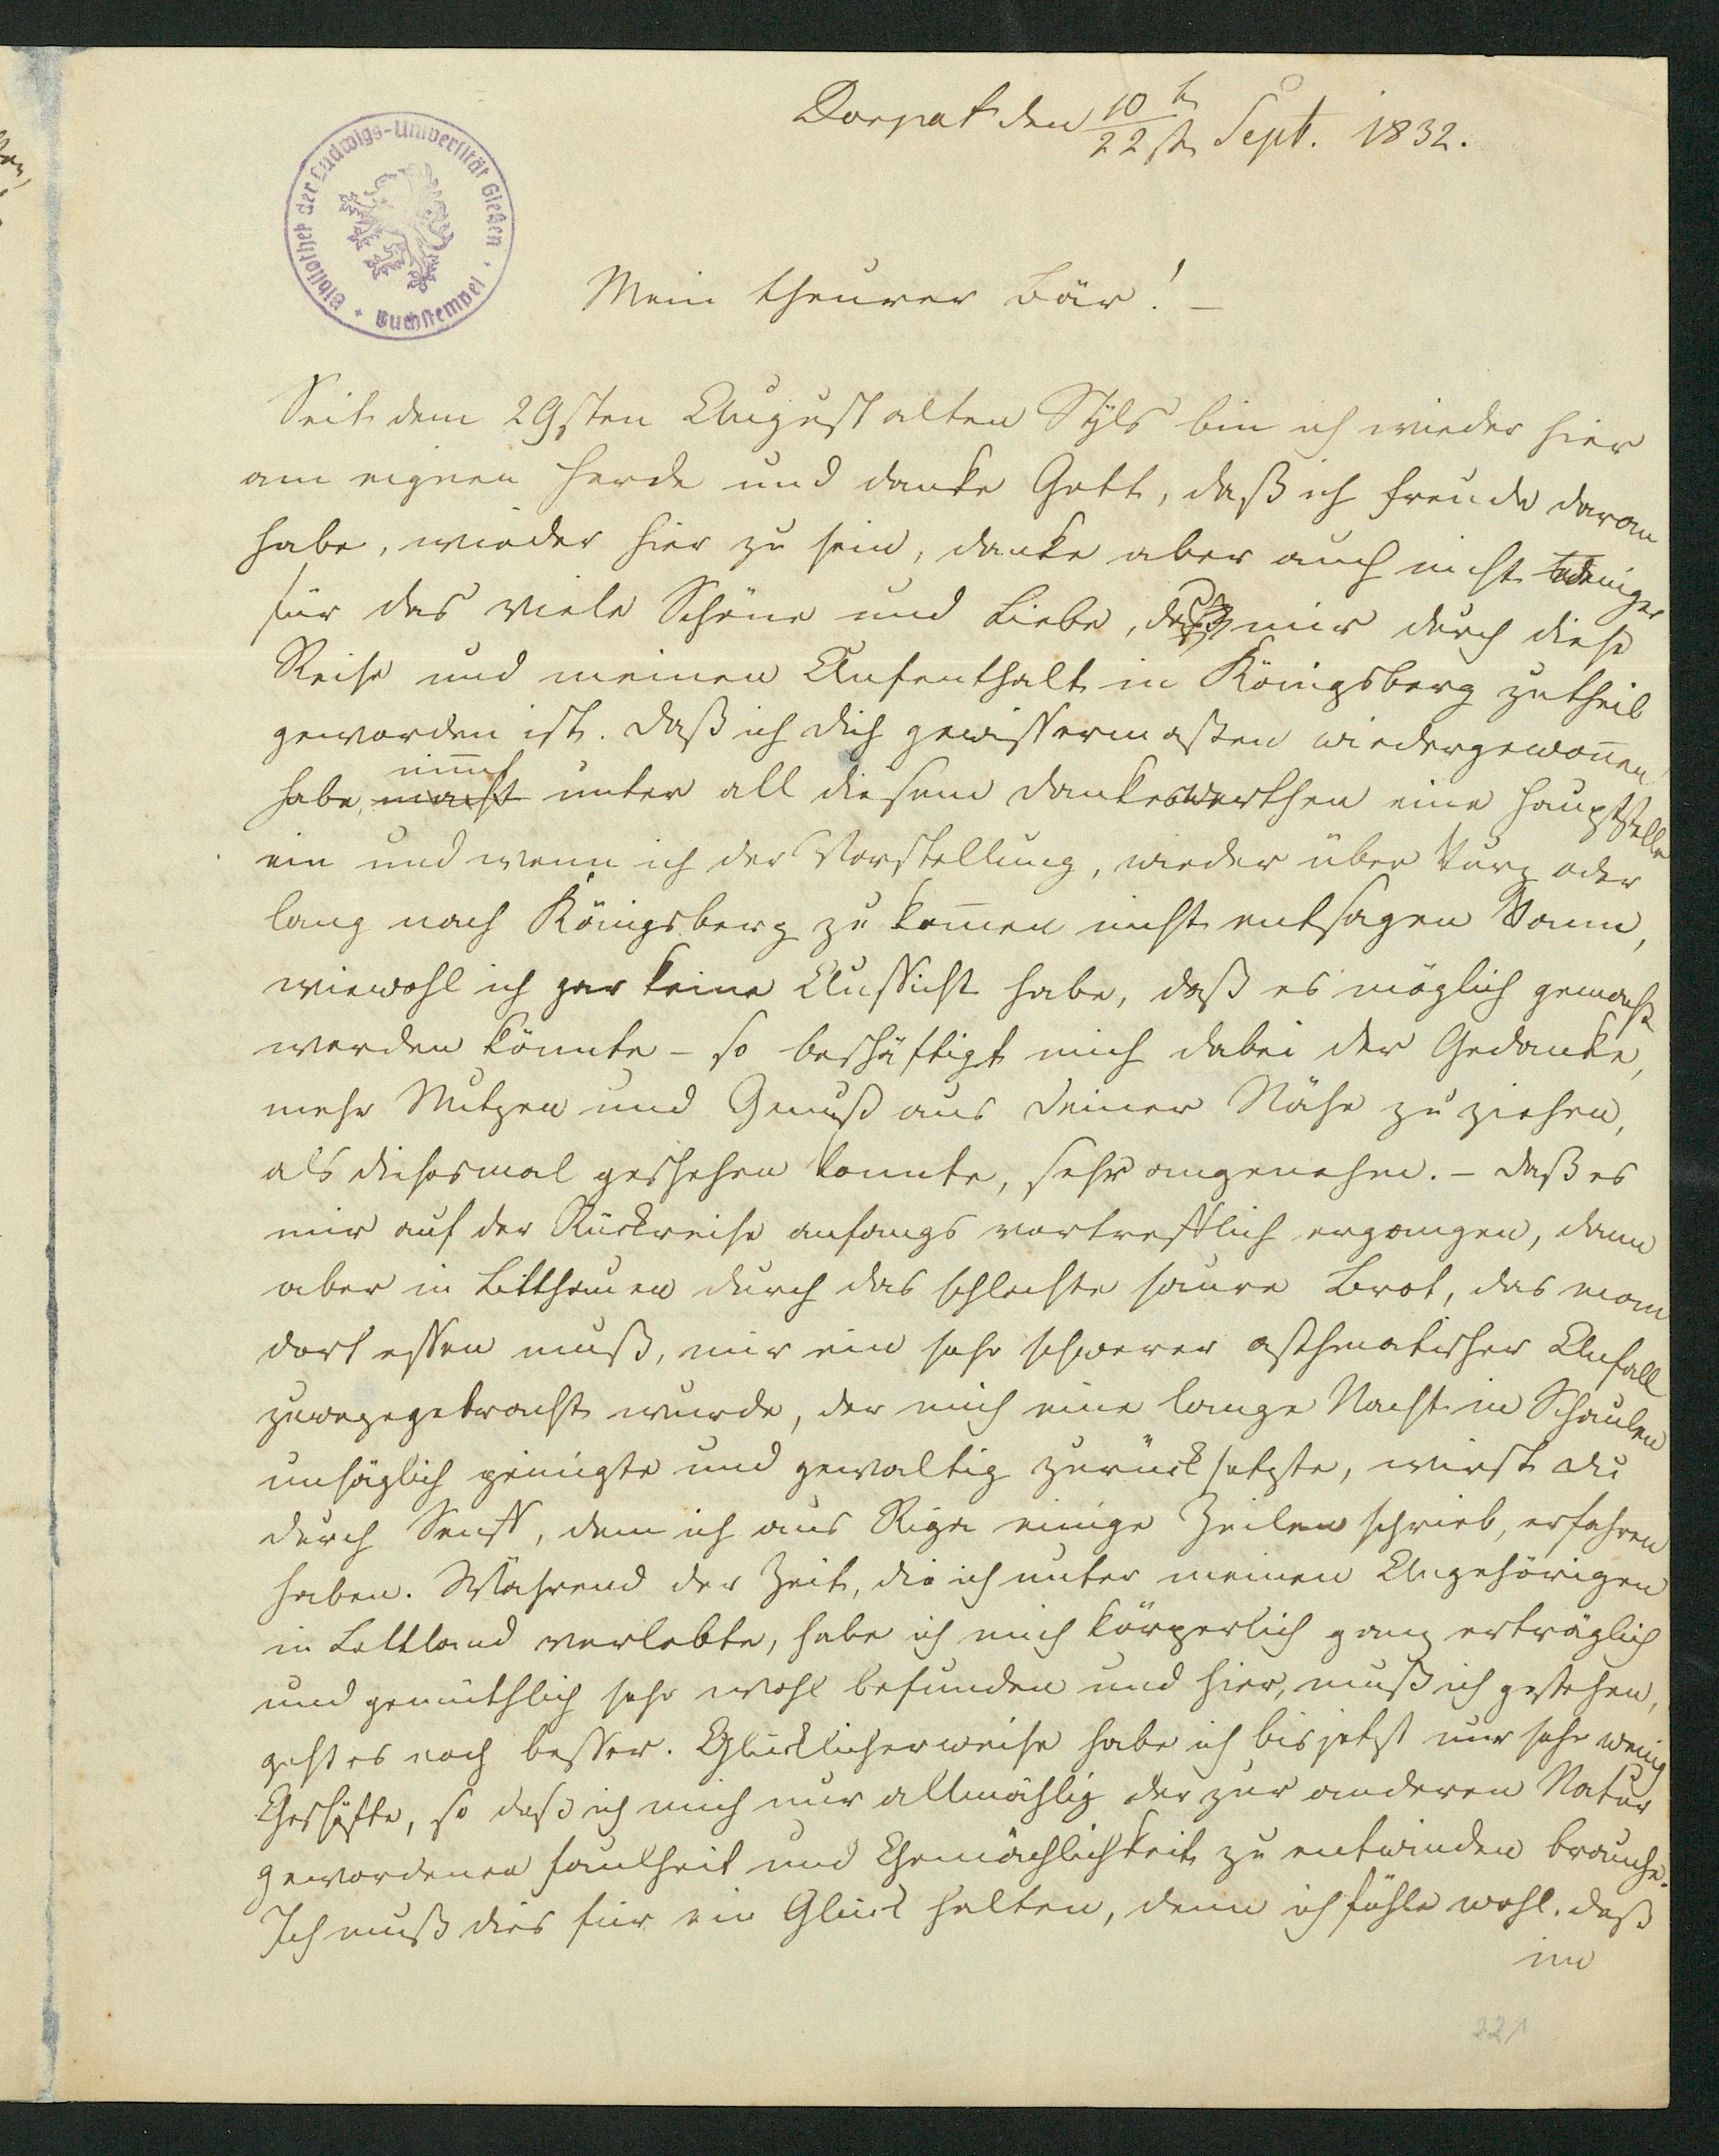 Dorpat den 10t/22st Sept. 1832.
Bibliothek der Ludwigs-Universität Gießen · Buchstempel ·
Mein theurer Bär! –
Seit dem 29sten August alten Styls bin ich wieder hier
am eignen Herde und danke Gott, daß ich Freude daran
habe, wieder hier zu sein, danke aber auch nicht weniger
für das viele Schöne und Liebe, das mir durch diese
Reise und meinen Aufenthalt in Königsberg zutheil
geworden ist. Daß ich dich gewissermaßen wiedergewonnen
nimmt
habe, macht unter all diesem dankeswerthen eine Hauptstelle
ein und wenn ich der Vorstellung, wieder über kurz oder
lang nach Königsberg zu kommen nicht entsagen kann,
wiewohl ich gar keine Aussicht habe, daß es möglich gemacht
werden könnte – so beschäftigt mich dabei der Gedanke,
mehr Nutzen und Genuß aus deiner Nähe zu ziehen,
als diesesmal geschehen konnte, sehr angenehm. – Daß es
mir auf der Rückreise anfangs vortrefflich ergangen, dann
aber in Litthauen durch das schlechte saure Brot, das man
dort essen muß, mir ein sehr schwerer asthmatischer Anfall
zuwegegebracht wurde, der mich eine lange Nacht in Schaulen
unsäglich peinigte und gewaltig zurücksetzte, wirst du
durch Senff, dem ich aus Riga einige Zeilen schrieb, erfahren
haben. Während der Zeit, die ich unter meinen Angehörigen
in Lettland verlebte, habe ich mich körperlich ganz erträglich
und gemüthlich sehr wohl befunden und hier, muß ich gestehen,
geht es noch besser. Glücklicherweise habe ich bis jetzt nur sehr wenig
Geschäfte, so daß ich mich nur allmählig der zur anderen Natur
gewordenen Faulheit und Gemächlichkeit zu entwinden brauche.
Ich muß dies für ein Glück halten, denn ich fühle wohl, daß
im
221